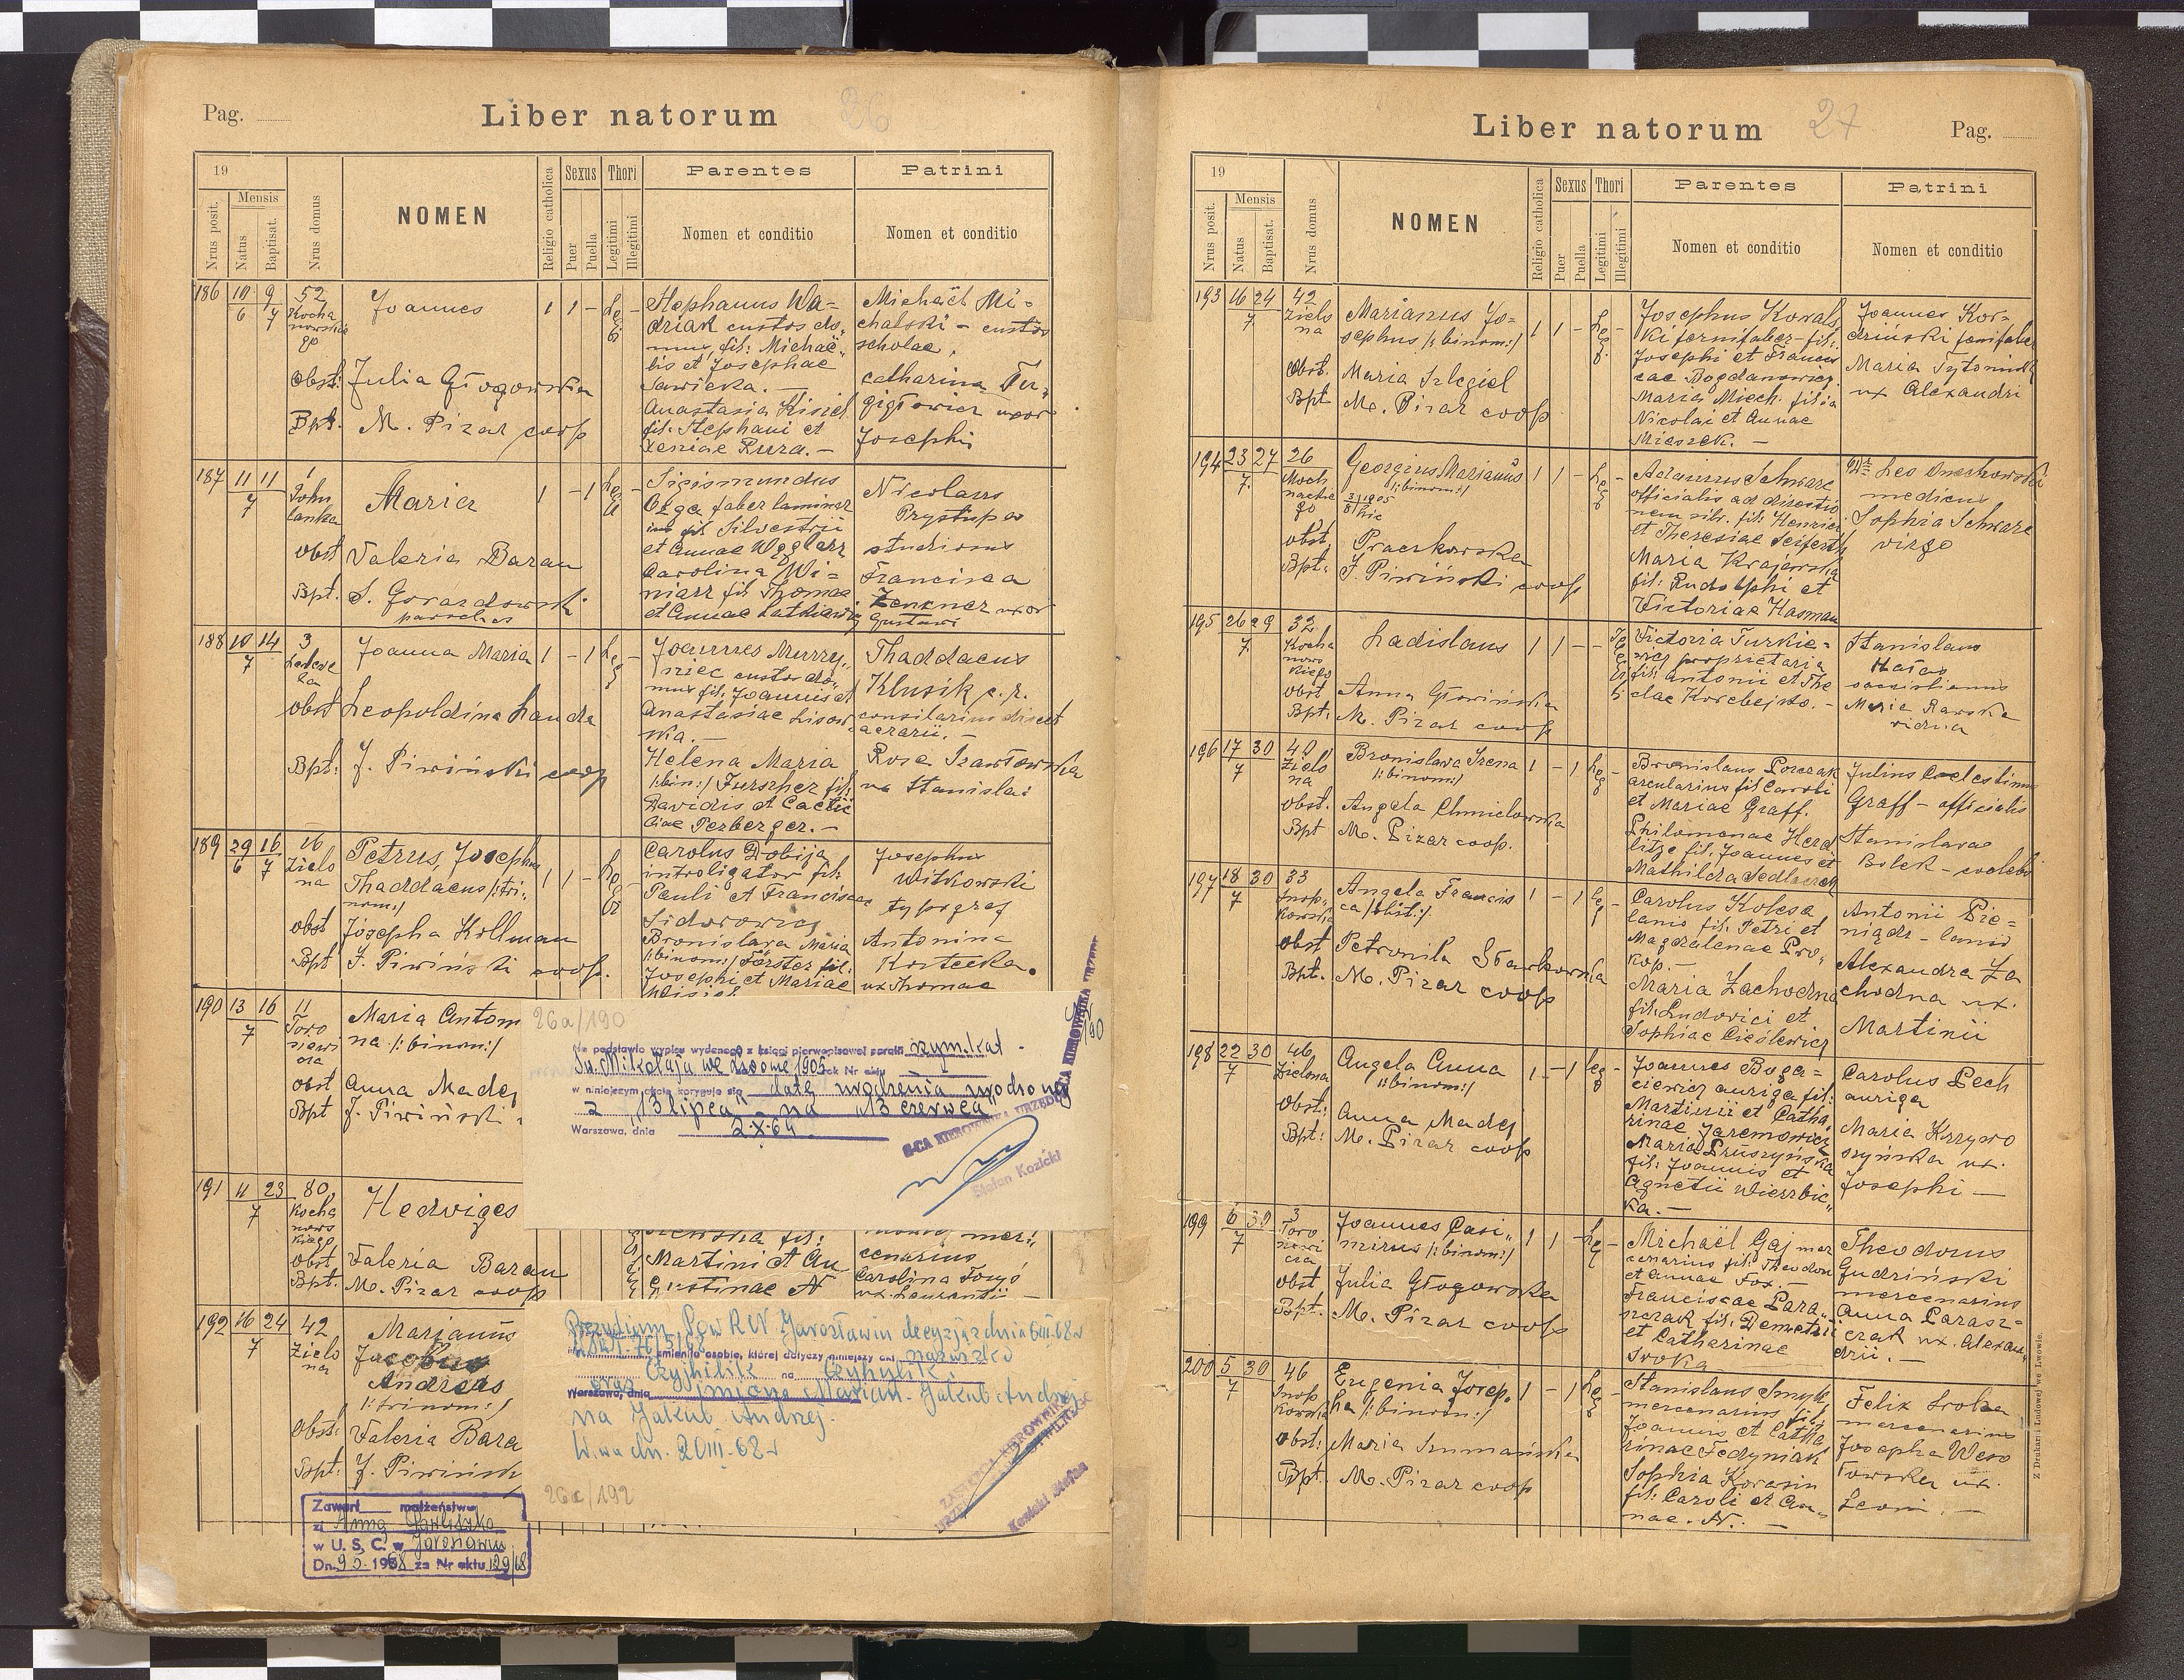 Pag.
Liber natorum
26
19
Mensis
Nrus posit.
Natus
Baptisat.
Nrus domus
NOMEN
Religio catholica
Sexus
Puer
Puella
Thori
Legitimi
Illegitimi
Parentes
Nomen et conditio
Patrini
Nomen et conditio
186 10 9 52 Joannes 1 1 - Leg -
6 7
Kocha
nowskie
go
Obst: Julia Głogowska
Bpt. M. Pizar coop
Stephanus Wa-
driak custos do-
mus, fil: Michaë-
lis et Josephae
Sawicka. —
Anastasia Kisiel
fil: Stephani et
Xeniae Rura. —
Michaël Mi-
chalski - custos
scholae,
Catharina
uxor
Josephi
187 11 11 1 Maria 1 - 1 Leg -
7
obst Valeria Baran
Bpt. S. Gorazdowski
parochus
Sigismundus
Ożga faber
fil Silvestrii
et Annae Węglarz
Carolina Wi-
niarz fil Thomae
et Annae
Nicolaus
Prystupa
studiosus
Francisca
Zenkner uxor
Gustavi
188 10 14 3 Joanna Maria 1 - 1 Leg -
7
Lelewe
la
obst Leopoldina Landa
Bpt: J. Piwiński coop
Joannes Murzy-
niec custos do-
mus fil: Joannis et
Anastasiae Lisow
ska. —
Helena Maria
/:bin:/ fil:
Davidis et
Perberger. —
Thaddaeus
Klusik c. r.
aerarii. —
Rosa Szawłowska
ux Stanislai
189 29 16 16 Petrus, Josephus
6 7
Zielo
na
Thaddaeus /:tri-
nom:/
1 1 - Leg
obst Josepha Kollman
Bpt J. Piwiński coop.
Carolus Dobija
introligator fil:
Pauli et Franciscae
Sidorowicz
Bronislava Maria
/:binom:/ Förster fil:
Josephi et Mariae
Josephus
Witkowski
typograf
Antonina
Kostecka.
ux Thomae
190 13 16 11 Maria Anton
7
Toro
siewi
cza
na /:binom:/
obst Anna Madej
Bpt J. Piwiński
26a/190
Na podstawie wypisu wydanego z księgi pierwopisowej parafii rzym. kat -
Św. Mikołaja we Lwowie 1905 rok Nr aktu
w niniejszym akcie koryguje się datę urodzenia urodzonej
z „13 lipca” na „13 czerwca”
Warszawa, dnia 2.X.64.
Z-CA KIEROWNIKA URZĘDU
Stefan Kozicki
191 4 23 80 Hedviges
7
Kocha
nows
kiego
obst Valeria Baran
Bpt. M. Pizar coop
fil:
Martini et Au
gustinae N
cenarius
Carolina
192 16 24 42 Marianus
7
Zielo
na
Jacobus
Andreas
/:trinom:/
Obst: Valeria Bara
Bpt: J. Piwińsk
Prezydium Pow RN Jarosławiu decyzją z dnia 6 III-68 r
zmieniło osobie, której dotyczy niniejszy akt nazwisko
Czyhilik na Czyhulik
oraz imiona Marian-Jakub Andrzej
Warszawa, dnia
na Jakub Andrzej.
W-wa dn. 20 III-68 r
26a/192
ZASTĘPCA KIEROWNIKA
Kozicki Stefan
Zawarł małżeństwo
z Anną
w U. S. C. w Jarosławiu
Dn. 1968 za Nr aktu 129/68
Liber natorum
27
Pag.
19
Mensis
Nrus posit.
Natus
Baptisat.
Nrus domus
NOMEN
Religio catholica
Sexus
Puer
Puella
Thori
Legitimi
Illegitimi
Parentes
Nomen et conditio
Patrini
Nomen et conditio
193 16 24 42 Marianus Jo-
7
Zielo
na
sephus /:binom:/ 1 1 - Leg. -
Obst. Maria Szlegiel
Bpt M. Pizar coop
Josephus Kowals
ki fil:
Josephi et Francis
cae Bogdanowicz.
Maria Miech. filia
Nicolai et Annae
Mieszek. —
Joannes Kor-
Maria
ux Alexandri
194 23 27 26 Georgius Marianus 1 1 - Leg -
7.
Moch
nackie
go
/:binom:/
obst.
Bpt: J. Piwiński coop
Adamus Schwarz
officialis ad directio
nem fil: Henrici
et Theresiae Seiferth
Maria Krajewska
fil: Rudolphi et
Victoriae Hasman
Dr Leo
medicus
Sophia Schwarz
virgo
195 26 29 32 Ladislaus 1 1 - -
7.
Kocha
nows
kiego
obst Anna Głowińska
Bpt: M. Pizar coop
Victoria Turkie-
wicz proprietaria
fil: Antonii et The
clae
Stanislaus
Hałas
Maria Rawska
vidua
196 17 30 40 Bronislava Irena 1 - 1 Leg -
7
Zielo
na
/:binom:/
obst. Angela Chmielowska
Bpt M. Pizar coop.
Bronislaus
arcularius fil Caroli
et Mariae Graff.
Philomenae
fil: Joannes et
Mathilda
Julius Coelestinus
Graff - officialis
Stanislava
Bolek -
197 18 30 33 Angela Francis 1 - 1 Leg -
7
Snop-
kowska
ca /:bin:/
obst Petronila
Bpt. M. Pizar coop
Carolus Kolesa
lanio fil: Petri et
Magdalenae Pro-
kop. —
Maria Zachodna
fil: Ludovici et
Sophiae Cieślewicz
Antonii Pie-
niądz - lanio
Alexandra Za
chodna ux.
Martinii
198 22 30 46 Angela Anna 1 - 1 Leg -
7
Zielona
/:binom:/
Obst: Anna Madej
Bpt: M. Pizar coop
Joannes Boga-
ciewicz auriga fil:
Martinii et Catha-
rinae Jaremowicz
Maria Pruszyńska
fil: Joannis et
Agnetii Wierzbic-
ka. —
Carolus Pech
auriga
Maria Krzywo
szyńska ux.
Josephi —
199 6 30 3 Joannes Casi- 1 1 - Leg -
7
Toro
siewi
cza
mirus /:binom:/
obst Julia Głogowska
Bpt: M. Pizar coop
Michaël Gaj mer
cenarius fil: Theodori
et Annae Fox. —
Franciscae Para-
szczak fil: Demetrii
et Catharinae
Sroka
Theodosius
Gudziński
mercenarius
Anna Parasz-
czak ux. Alexan-
drii. —
200 5 30 46 Eugenia Josep- 1 - 1 Leg -
7
Snop
kowska
ha /:binom:/
obst: Maria Szumańska
Bpt. M. Pizar coop
Stanislaus Smyk
mercenarius fil:
Joannis et Catha
rinae Fedyniak
Sophia
fil: Caroli et An-
nae. N. —
Felix Sroka
mercenarius
Josepha Weso
łowska ux.
Leoni. —
Z Drukarni Ludowej we Lwowie.